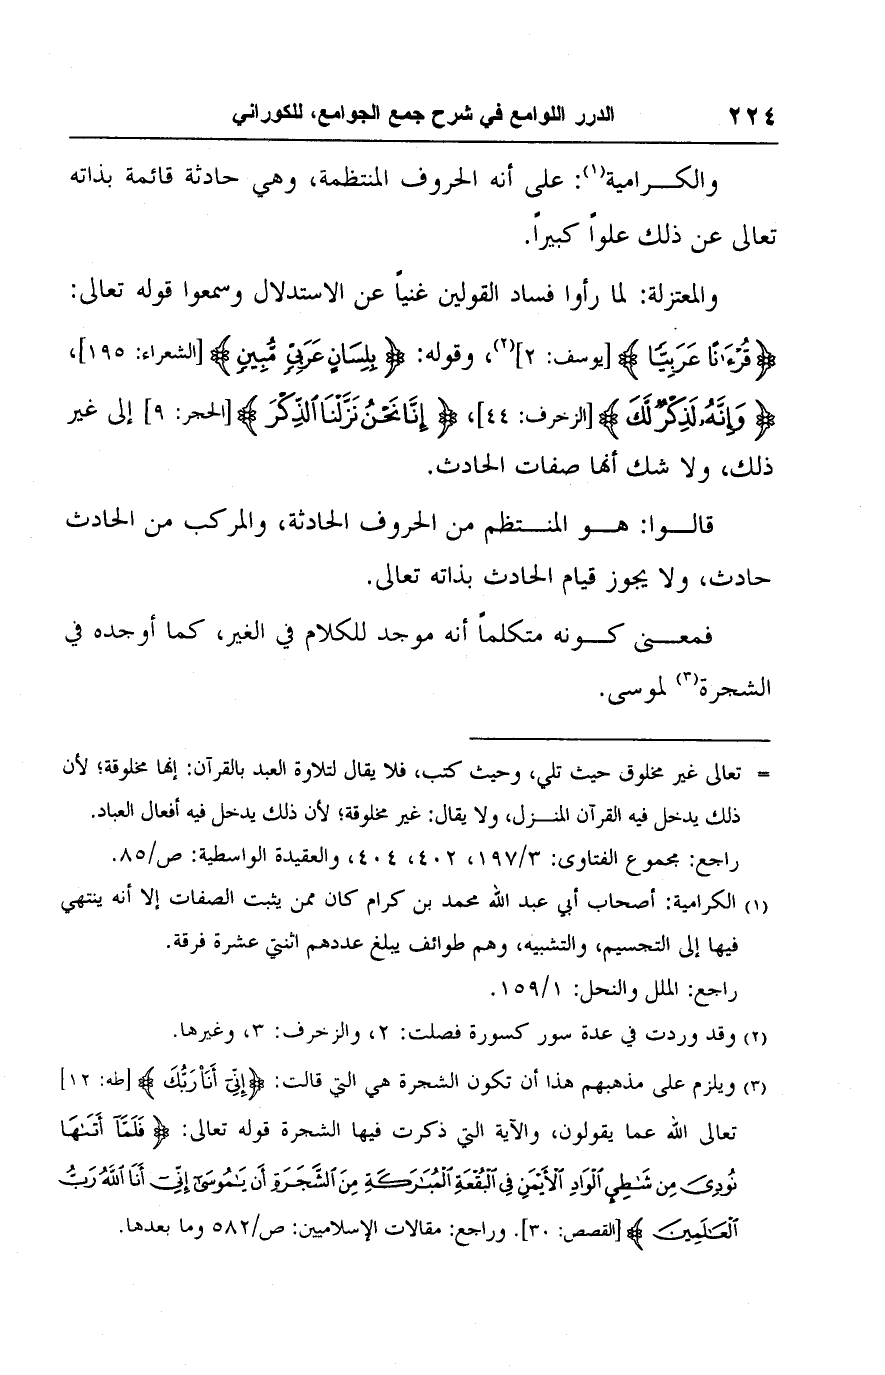 ٢٢٤ الدرر اللوامع في شرح جمع الجوامع، للكوراني
والكـــرامية(١): على أنه الحروف المنتظمة، وهي حادثة قائمة بذاته
تعالى عن ذلك علواً كبيراً.
والمعتزلة: لما رأوا فساد القولين غنياً عن الاستدلال وسمعوا قوله تعالى:
﴿ قُرْءَٰنًا عَرَبِيًّا ﴾ [يوسف: ٢](٢)، وقوله: ﴿ بِلِسَانٍ عَرَبِيٍّ مُّبِينٍ ﴾ [الشعراء: ١٩٥]،
﴿ وَإِنَّهُۥ لَذِكْرٌ لَّكَ ﴾ [الزخرف: ٤٤]، ﴿ إِنَّا نَحْنُ نَزَّلْنَا ٱلذِّكْرَ ﴾ [الحجر: ٩] إلى غير
ذلك، ولا شك أنها صفات الحادث.
قالـــوا: هـــو المنـــتظم من الحروف الحادثة، والمركب من الحادث
حادث، ولا يجوز قيام الحادث بذاته تعالى.
فمعـــنى كـــونه متكلماً أنه موجد للكلام في الغير، كما أوجده في
الشجرة(٣) لموسى.
= تعالى غير مخلوق حيث تلي، وحيث كتب، فلا يقال لتلاوة العبد بالقرآن: إنها مخلوقة؛ لأن
ذلك يدخل فيه القرآن المنـــزل، ولا يقال: غير مخلوقة؛ لأن ذلك يدخل فيه أفعال العباد.
راجع: مجموع الفتاوى: ١٩٧/٣، ٤٠٢، ٤٠٤، والعقيدة الواسطية: ص/٨٥.
(١) الكرامية: أصحاب أبي عبد الله محمد بن كرام كان ممن يثبت الصفات إلا أنه ينتهي
فيها إلى التجسيم، والتشبيه، وهم طوائف يبلغ عددهم اثنتي عشرة فرقة.
راجع: الملل والنحل: ١٥٩/١.
(٢) وقد وردت في عدة سور كسورة فصلت: ٢، والزخرف: ٣، وغيرها.
(٣) ويلزم على مذهبهم هذا أن تكون الشجرة هي التي قالت: ﴿إِنِّىٓ أَنَا۠ رَبُّكَ ﴾ [طه: ١٢]
تعالى الله عما يقولون، والآية التي ذكرت فيها الشجرة قوله تعالى: ﴿ فَلَمَّآ أَتَىٰهَا
نُودِىَ مِن شَٰطِئِ ٱلْوَادِ ٱلْأَيْمَنِ فِى ٱلْبُقْعَةِ ٱلْمُبَٰرَكَةِ مِنَ ٱلشَّجَرَةِ أَن يَٰمُوسَىٰٓ إِنِّىٓ أَنَا ٱللَّهُ رَبُّ
ٱلْعَٰلَمِينَ ﴾ [القصص: ٣٠]. وراجع: مقالات الإسلاميين: ص/٥٨٢ وما بعدها.